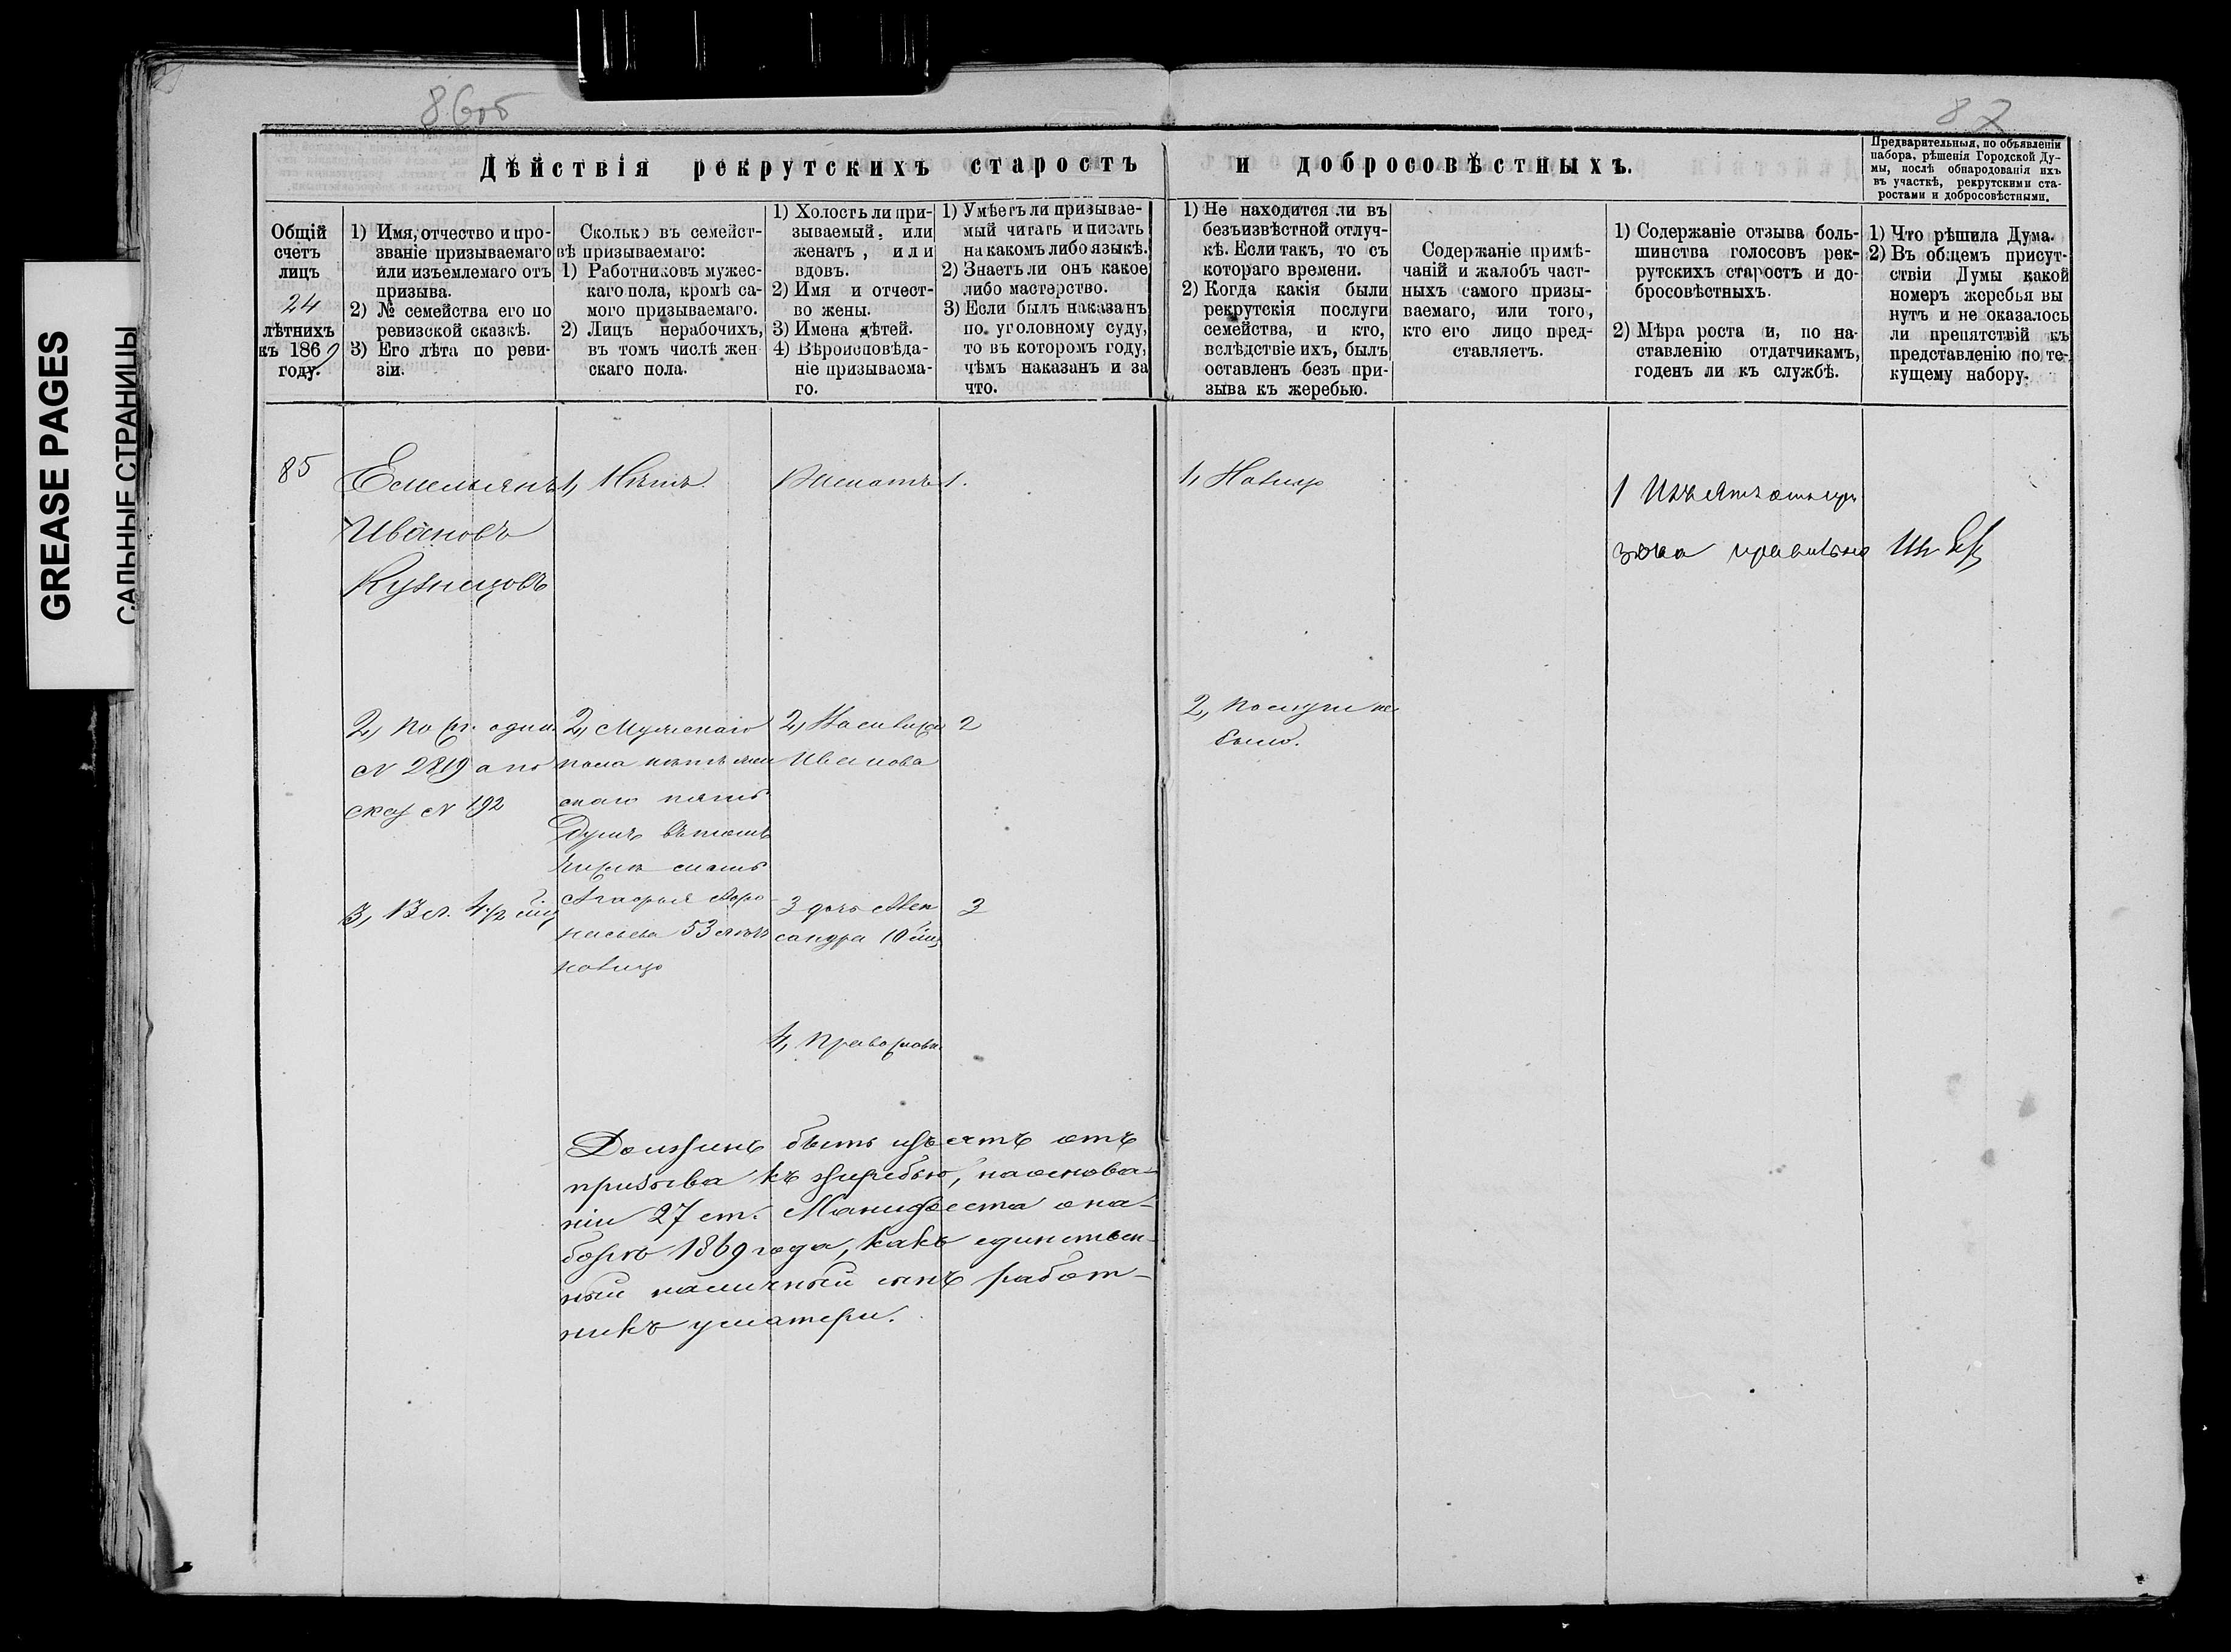 GREASE PAGES
САЛЬНЫЕ СТРАНИЦЫ
86об
87
Дѣйствія рекрутскихъ старостъ и добросовѣстныхъ.
Предварительныя, по объявленіи
набора, рѣшенія Городской Ду-
мы, послѣ обнародованія ихъ
въ участкѣ, рекрутскими ста-
ростами и добросовѣстными.
Общій
счетъ
лицъ
24
лѣтнихъ
къ 1869
году.
1) Имя, отчество и про-
званіе призываемаго
или изъемлемаго отъ
призыва.
2) № семейства его по
ревизской сказкѣ.
3) Его лѣта по реви-
зіи.
Сколько въ семейст-
вѣ призываемаго:
1) Работниковъ мужес-
каго пола, кромѣ са-
мого призываемаго.
2) Лицъ нерабочихъ,
въ томъ числѣ жен
скаго пола.
1) Холостъ ли при-
зываемый, или
женатъ, или
вдовъ.
2) Имя и отчест-
во жены.
3) Имена дѣтей.
4) Вѣроисповѣда-
ніе призываема-
го.
1) Умѣетъ ли призывае-
мый читать и писать
на какомъ либо языкѣ.
2) Знаетъ ли онъ какое
либо мастерство.
3) Если былъ наказанъ
по уголовному суду,
то въ которомъ году,
чѣмъ наказанъ и за
что.
1) Не находится ли въ
безъизвѣстной отлуч-
кѣ. Если такъ, то съ
котораго времени.
2) Когда какія были
рекрутскія послуги
семейства, и кто,
вслѣдствіе ихъ, былъ
оставленъ безъ при-
зыва къ жеребью.
Содержаніе примѣ-
чаній и жалобъ част-
ныхъ самого призы-
ваемаго, или того,
кто его лицо пред-
ставляетъ.
1) Содержаніе отзыва боль-
шинства голосовъ рек-
рутскихъ старостъ и до-
бросовѣстныхъ.
2) Мѣра роста и, по на-
ставленію отдатчикамъ,
годенъ ли къ службѣ.
1) Что рѣшила Дума.
2) Въ общемъ присут-
ствіи Думы какой
номеръ жеребья вы
нутъ и не оказалось
ли препятствій къ
представленію по те-
кущему набору.
85
Емельянъ
Ивановъ
Кузнецовъ
2, по
№ 2819 а по
сказ № 192
3, 13 л. 4 1/2
1, Нѣтъ
2, Мужскаго
пола нѣтъ жен
скаго пять
душъ въ томъ
числѣ мать
Агафья
53 лѣтъ
налицо
1 Женатъ
2,
Иванова
3 дочь Алек
сандра 10
4, Православн.
1.
2
3
Должинъ быть изъятъ отъ
призыва къ жеребью, на основа-
ніи 27 ст. Манифеста о на-
борѣ 1869 года, какъ единствен-
ный наличный сынъ работ-
никъ у матери.
1, Налицо
2, послуги не
было.
1 Изъятъ отъ при
зыва правильно